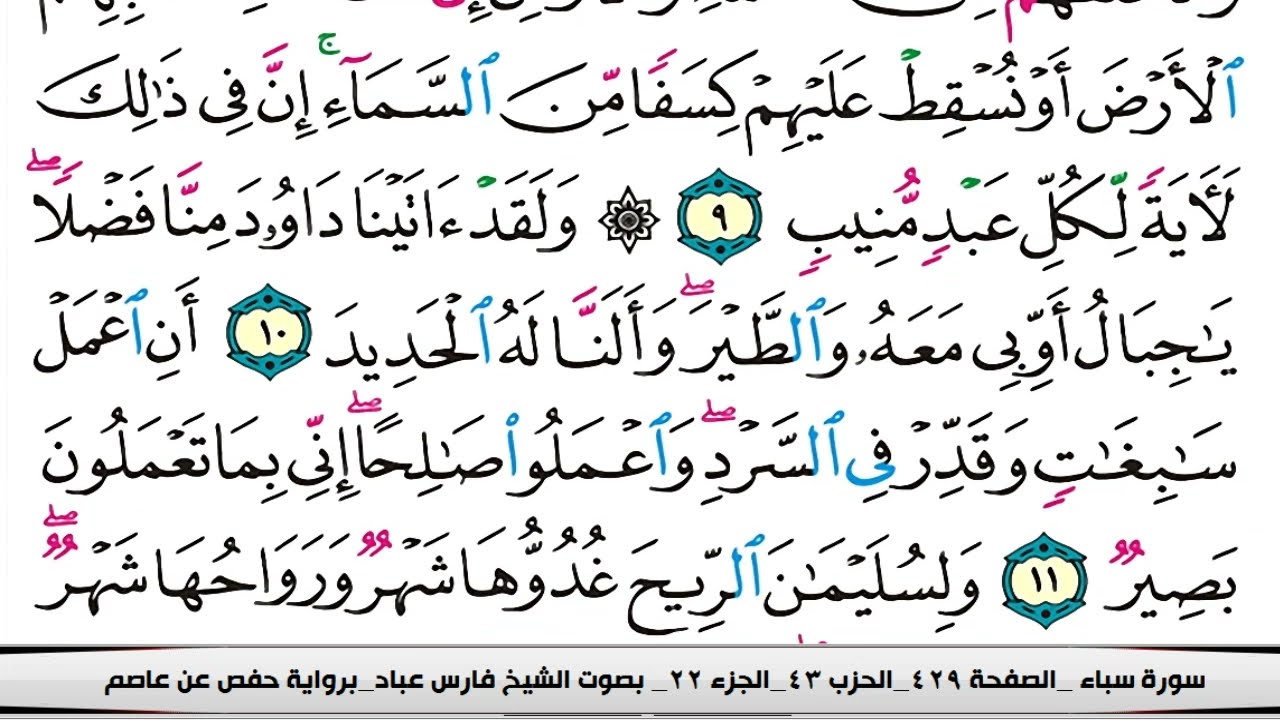 ٱلْأَرْضَ أَوْ نُسْقِطْ عَلَيْهِمْ كِسَفًا مِّنَ ٱلسَّمَآءِ ۚ إِنَّ فِى ذَٰلِكَ
لَـَٔايَةً لِّكُلِّ عَبْدٍ مُّنِيبٍ ٩ ۞ وَلَقَدْ ءَاتَيْنَا دَاوُۥدَ مِنَّا فَضْلًا ۖ
يَـٰجِبَالُ أَوِّبِى مَعَهُۥ وَٱلطَّيْرَ ۖ وَأَلَنَّا لَهُ ٱلْحَدِيدَ ١٠ أَنِ ٱعْمَلْ
سَـٰبِغَـٰتٍ وَقَدِّرْ فِى ٱلسَّرْدِ ۖ وَٱعْمَلُوا۟ صَـٰلِحًا ۖ إِنِّى بِمَا تَعْمَلُونَ
بَصِيرٌ ١١ وَلِسُلَيْمَـٰنَ ٱلرِّيحَ غُدُوُّهَا شَهْرٌ وَرَوَاحُهَا شَهْرٌ ۖ
سورة سباء _الصفحة ٤٢٩_الحزب ٤٣_الجزء ٢٢_ بصوت الشيخ فارس عباد_برواية حفص عن عاصم